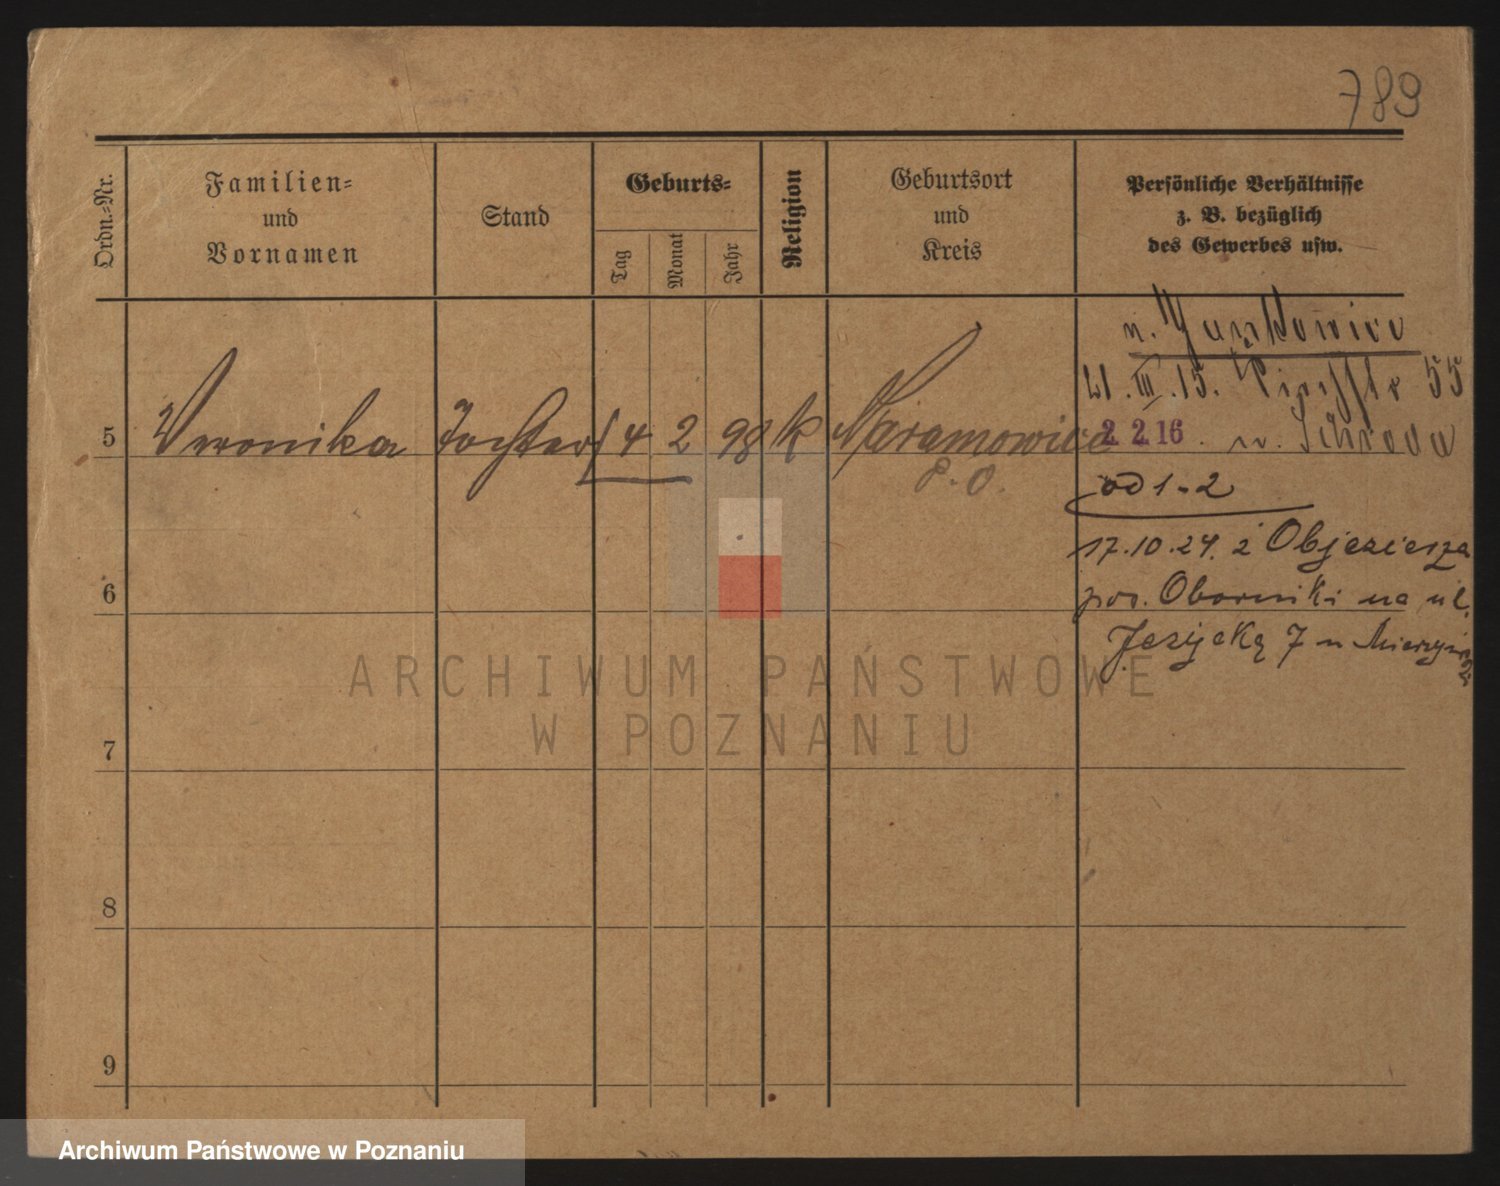 789
Ordn.-Nr.
Familien-
und
Vornamen
Stand
Geburts-
Tag
Monat
Jahr
Religion
Geburtsort
und
Kreis
Persönliche Verhältnisse
z. B. bezüglich
des Gewerbes usw.
n. Junikowice
21. III. 15. 55
5 Veronika Tochter 4 2 98 k Naramowice
P. O.
2. 2. 16. n. Schroda
od 1-2
17.10.24. z Objezierza
6 pow. Oborniki na ul.
Jezycką 7
ARCHIWUM PAŃSTWOWE
W POZNANIU
7
8
9
Archiwum Państwowe w Poznaniu